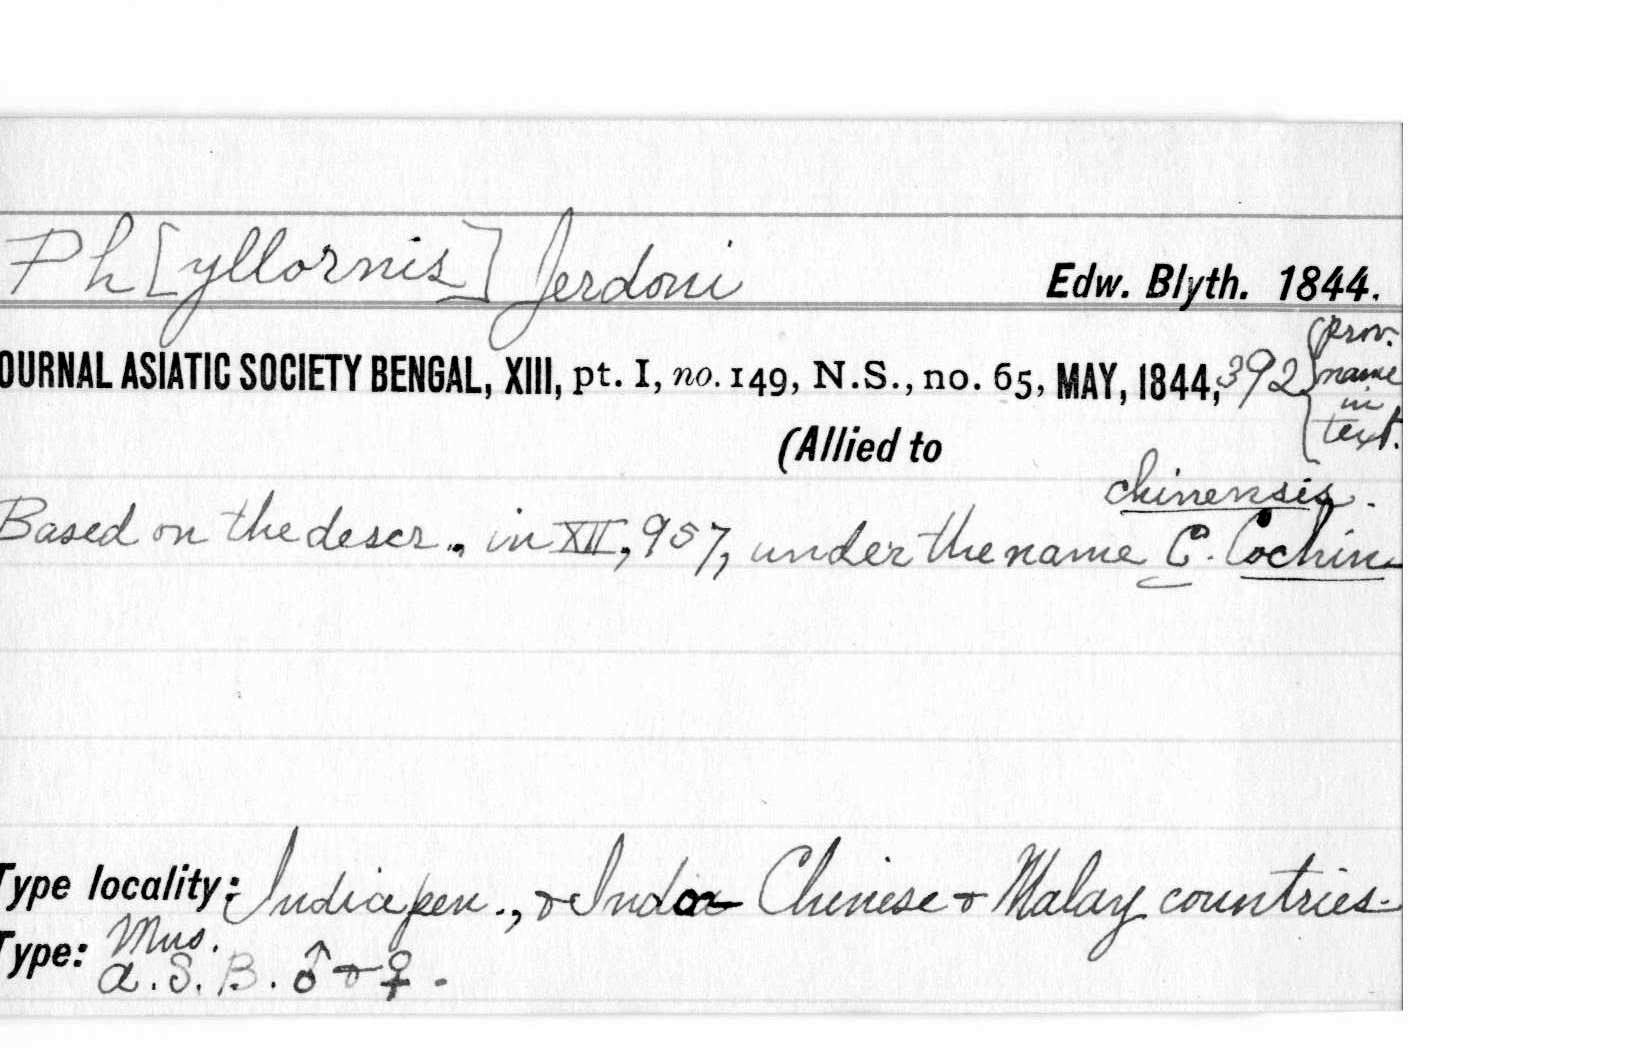 Ph[yllornis] Jerdoni Edw. Blyth. 1844.
OURNAL ASIATIC SOCIETY BENGAL, XIII, pt. I, no. 149, N.S., no. 65, MAY, 1844, 392 {prov. name in text.
(Allied to
chinensis.
Based on the descr., in XII, 957, under the name C. Cochin-
Type locality: India pen., & Indo- Chinese & Malay countries.
Type: Mus.
A.S.B. ♂ & ♀.